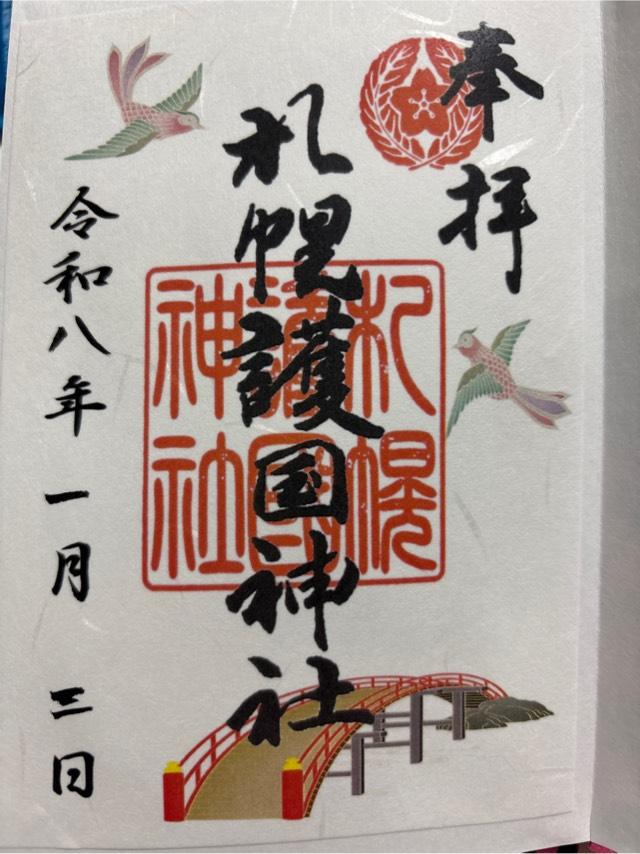 奉拝
札幌護国神社
札幌
護國
神社
令和八年一月三日